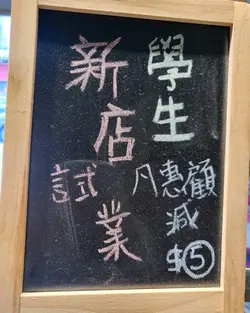 新店試業
學生
凡惠顧
減
$5